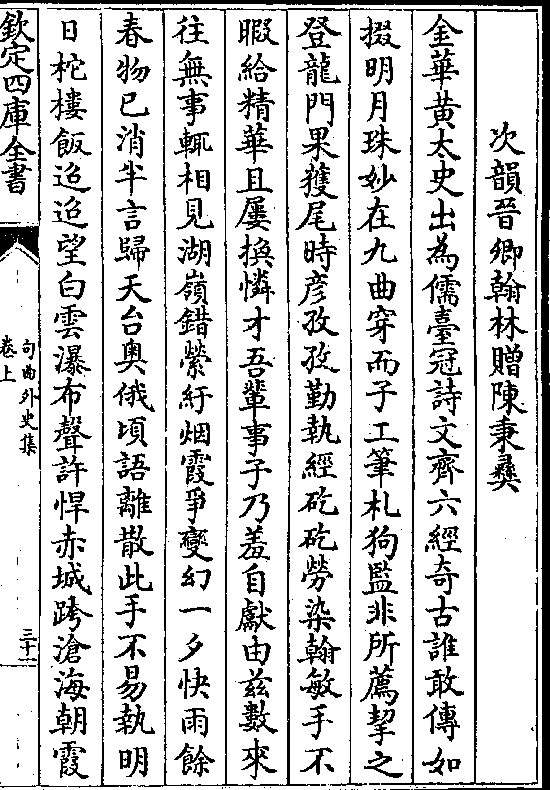 次韻晉卿翰林贈陳秉彛
金華黄太史出為儒臺冠詩文齊六經奇古誰敢傳如
掇明月珠妙在九曲穿而子工筆札狗監非所薦挈之
登龍門果獲尾時彦孜孜勤執經矻矻勞染翰敏手不
暇給精華且屢換憐才吾輩事子乃羞自獻由兹數來
往無事輒相見湖嶺錯縈紆烟霞爭變幻一夕快雨餘
春物已消半言歸天台奥俄頃語離散此手不易執明
日柁樓飯迢迢望白雲瀑布聲許悍赤城跨滄海朝霞
欽定四庫全書
句曲外史集
卷上
三十二